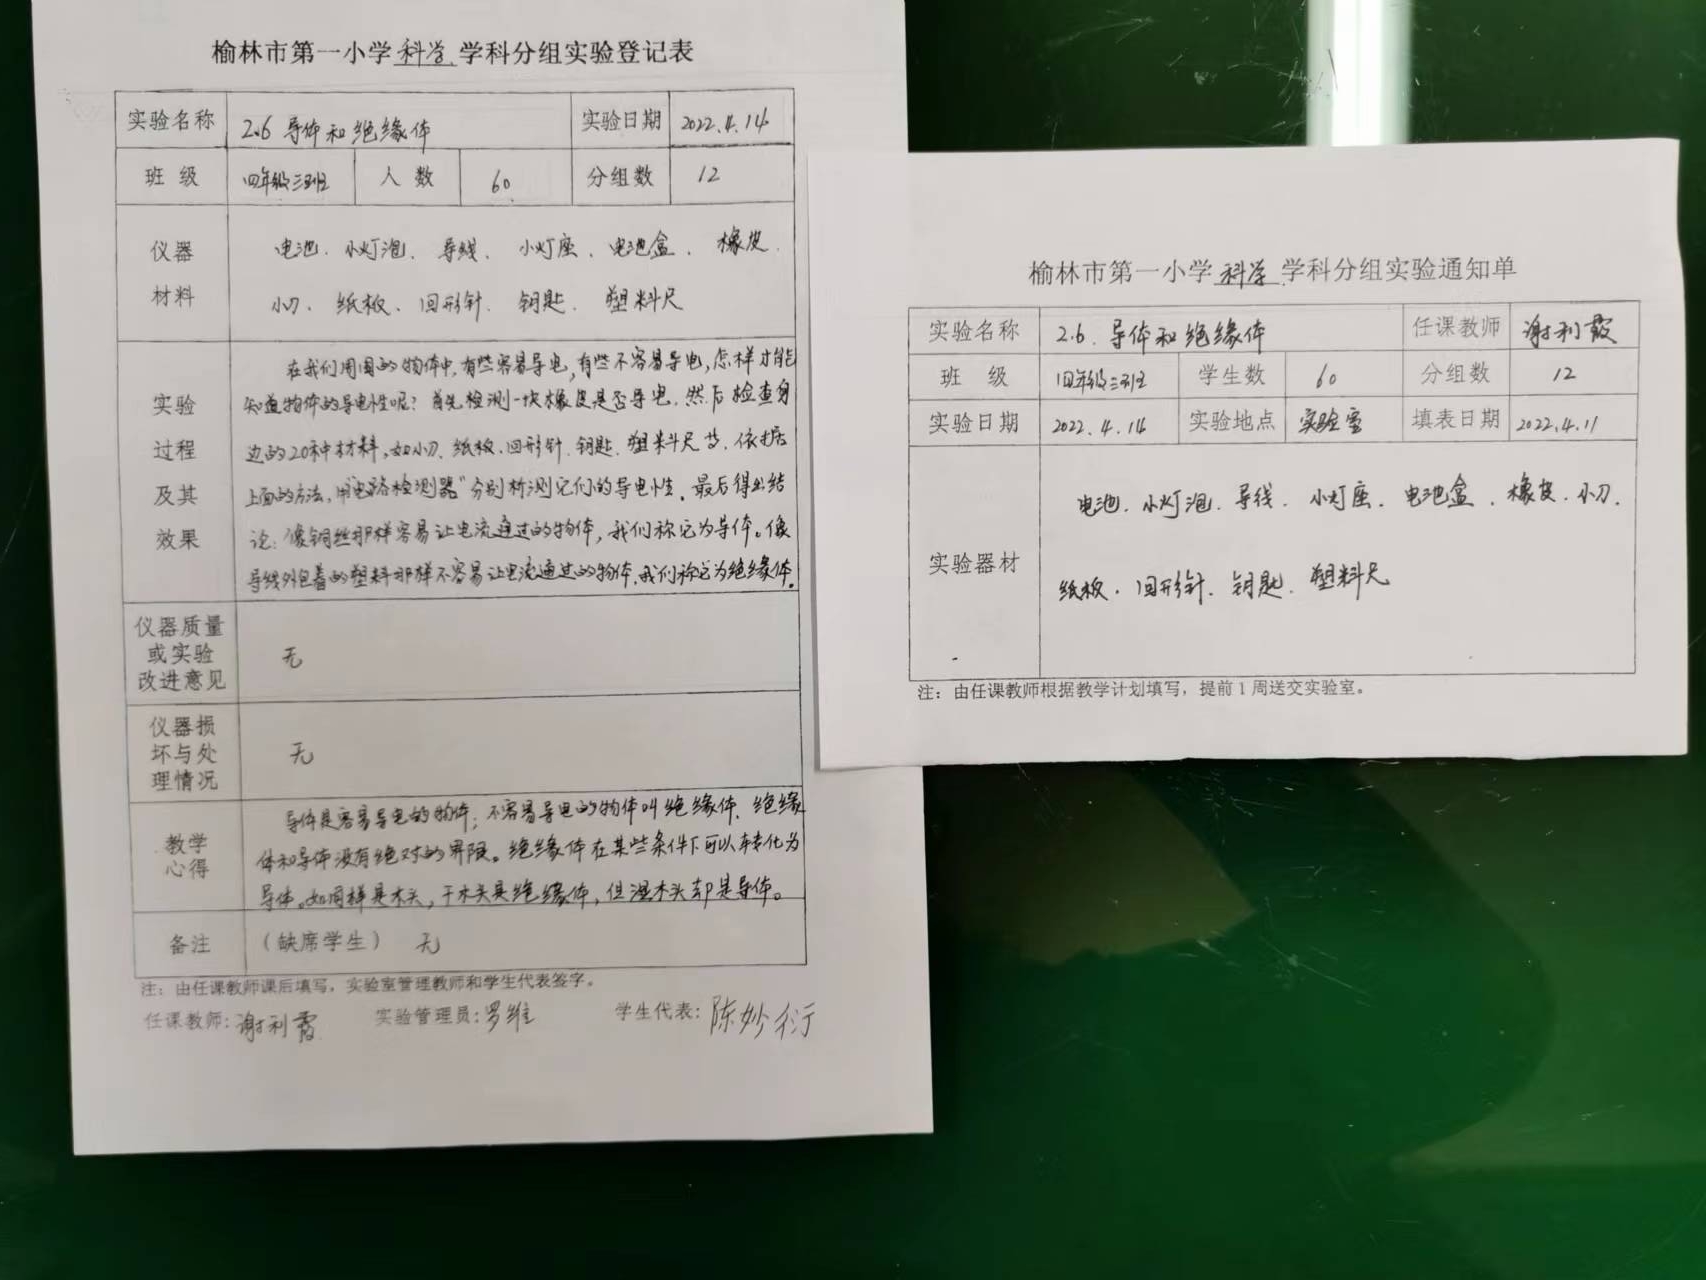 榆林市第一小学科学学科分组实验登记表
实验名称 2.6 导体和绝缘体 实验日期 2022.4.14
班 级 四年级三班 人 数 60 分组数 12
仪器 材料
电池、小灯泡、导线、小灯座、电池盒、橡皮、
小刀、纸板、回形针、钥匙、塑料尺
实验 过程 及其 效果
在我们周围的物体中,有些容易导电,有些不容易导电,怎样才能
知道物体的导电性呢?首先检测一块橡皮是否导电,然后检查身
边的20种材料,如小刀、纸板、回形针、钥匙、塑料尺等,依据
上面的方法,用“电路检测器”分别析测它们的导电性。最后得出结
论:像铜丝那样容易让电流通过的物体,我们称它为导体。像
导线外包着的塑料那样不容易让电流通过的物体,我们称它为绝缘体。
仪器质量
或实验
改进意见
无
仪器损
坏与处
理情况
无
教学
心得
导体是容易导电的物体;不容易导电的物体叫绝缘体,绝缘
体和导体没有绝对的界限。绝缘体在某些条件下可以转化为
导体。如同样是木头,干木头是绝缘体,但湿木头却是导体。
备注 (缺席学生) 无
注:由任课教师课后填写,实验室管理教师和学生代表签字。
任课教师:谢利霞 实验管理员:罗维 学生代表:陈妙衍
榆林市第一小学科学学科分组实验通知单
实验名称 2.6、导体和绝缘体 任课教师 谢利霞
班 级 四年级三班 学生数 60 分组数 12
实验日期 2022.4.14 实验地点 实验室 填表日期 2022.4.11
实验器材
电池、小灯泡、导线、小灯座、电池盒、橡皮、小刀、
纸板、回形针、钥匙、塑料尺
注:由任课教师根据教学计划填写,提前1周送交实验室。